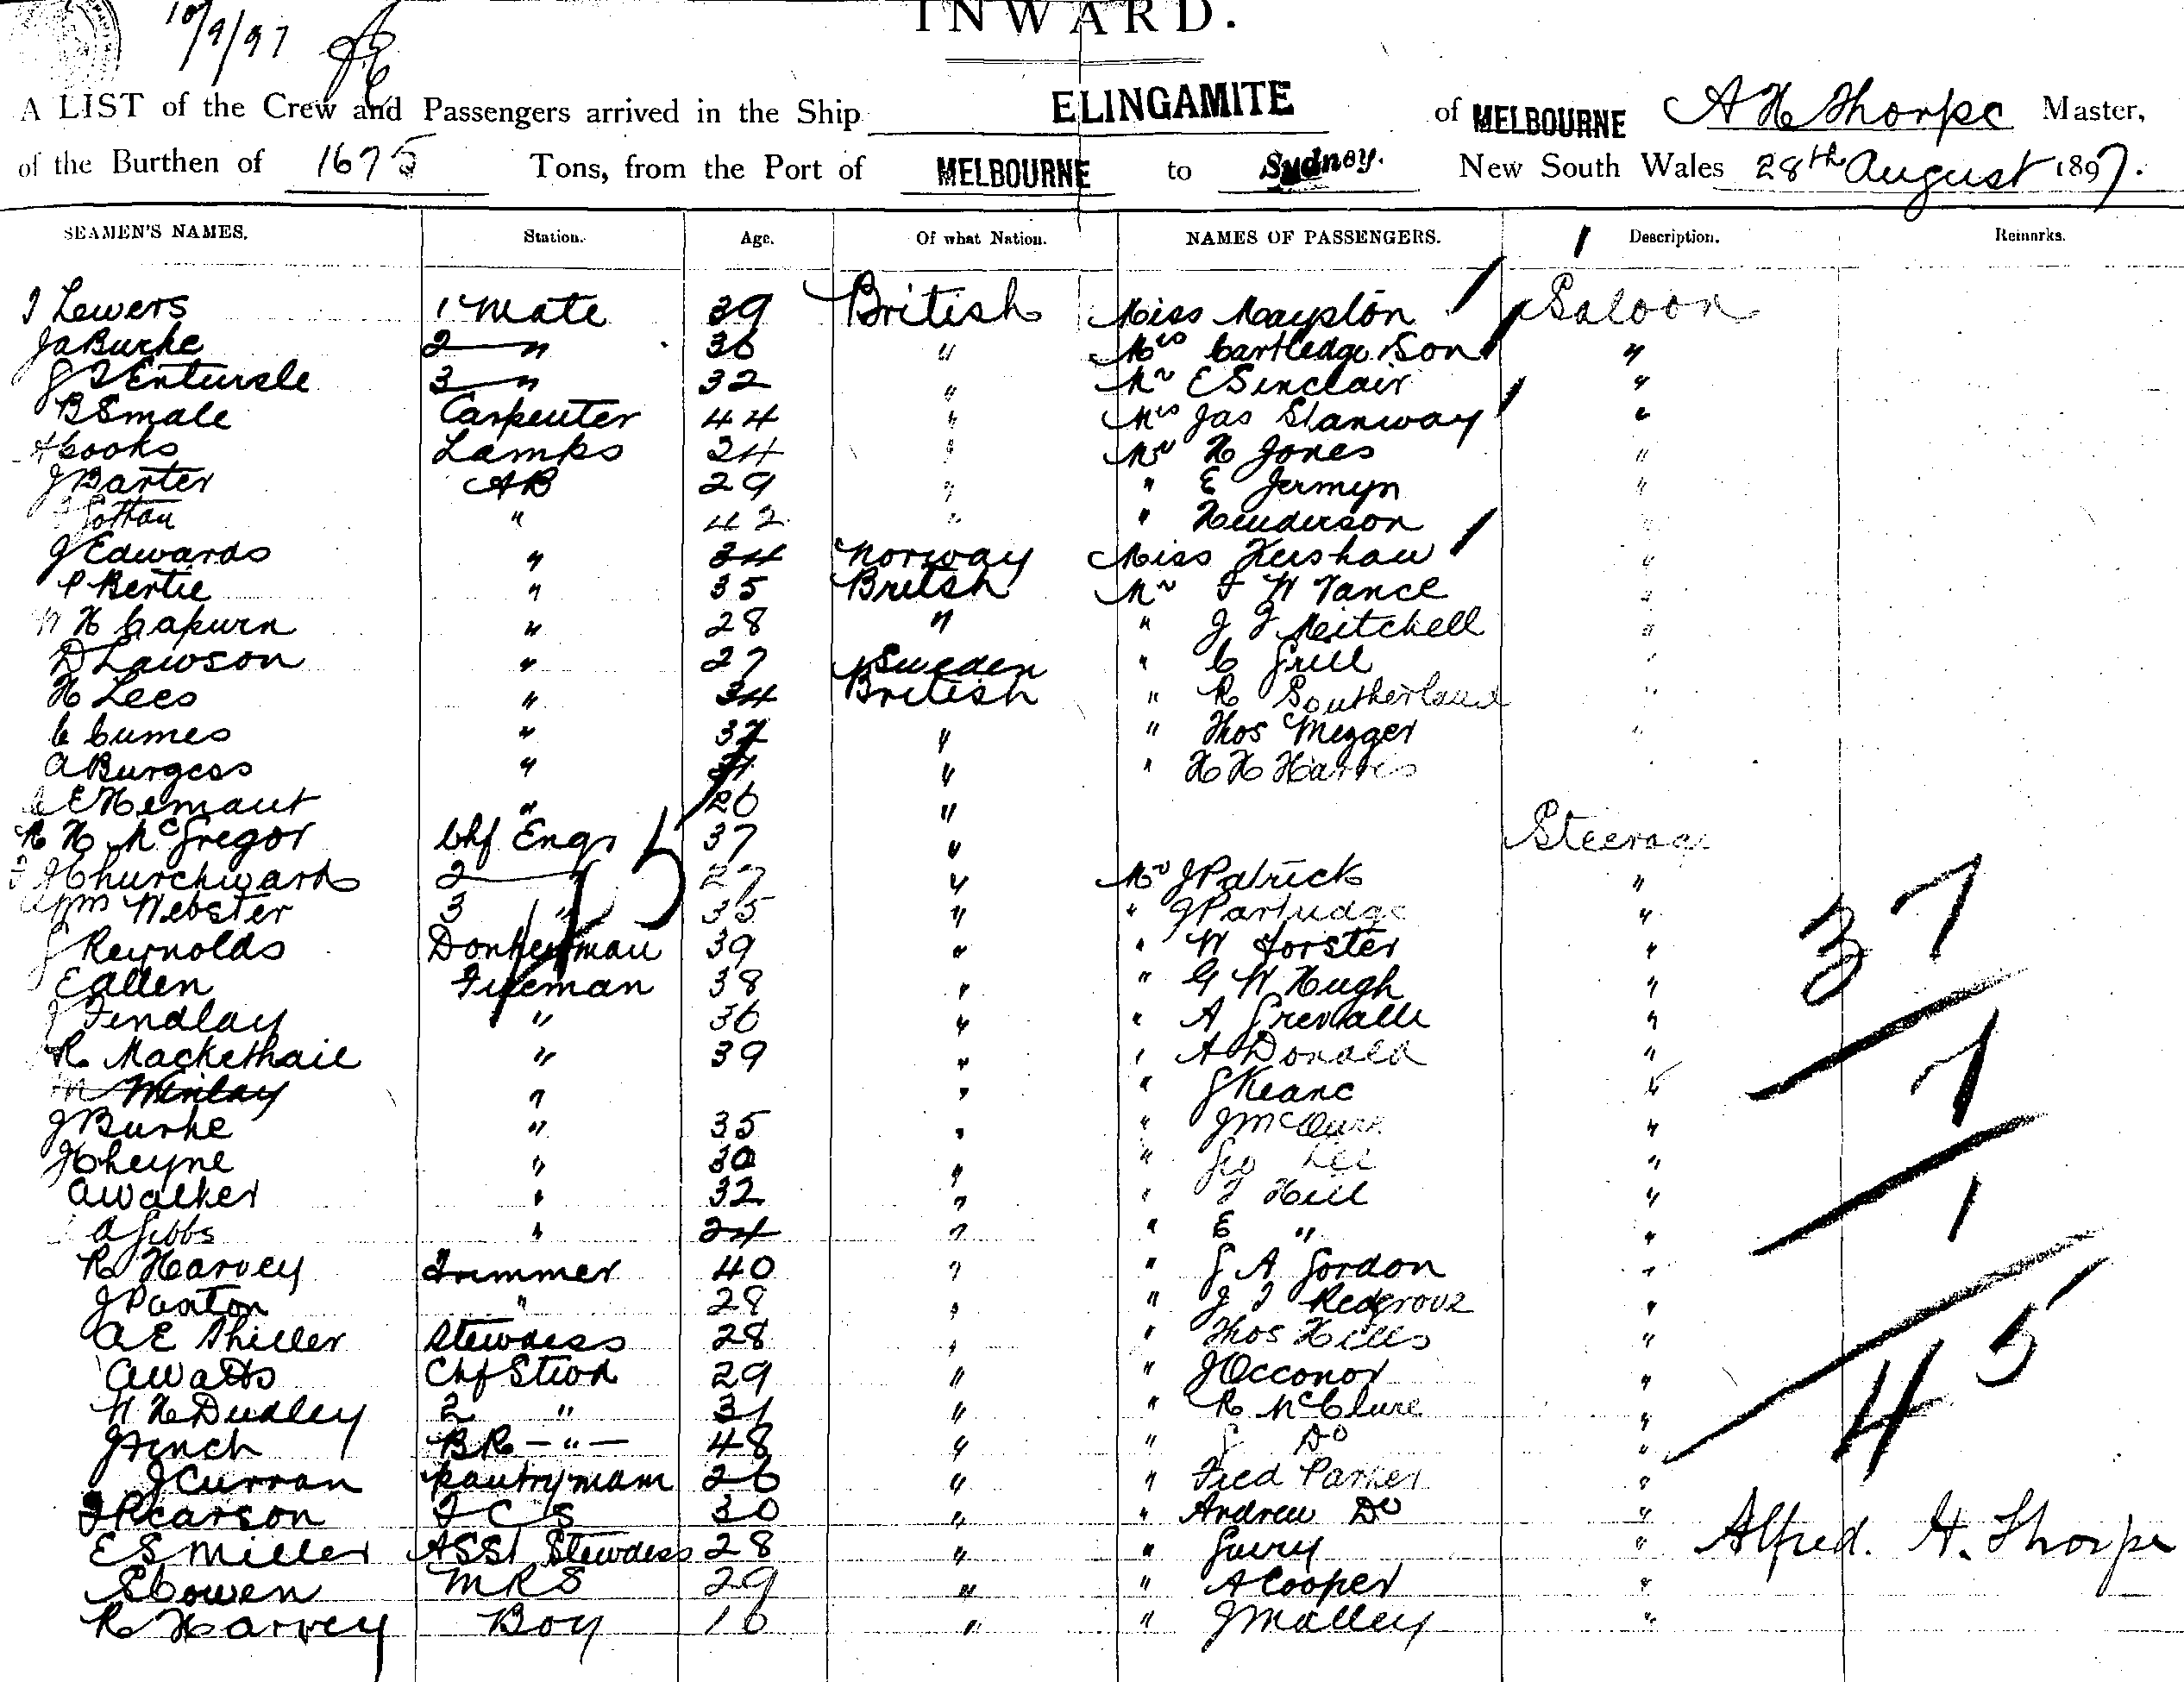 10/9/97
INWARD.
A LIST of the Crew and Passengers arrived in the Ship ELINGAMITE of MELBOURNE A H Thorpe Master,
of the Burthen of 1675 Tons, from the Port of MELBOURNE to Sydney. New South Wales 28th August 1897.
SEAMEN'S NAMES. Station. Age. Of what Nation. NAMES OF PASSENGERS. Description. Remarks.
Lewers 1 Mate 39 British Miss Mayplon Saloon
Jas Burke 2 " 36 " Mrs Cartledge & Son "
Entwisle 3 " 32 " Mr E Sinclair "
B Smale Carpenter 44 " Mrs Jas Stanway "
Cooks Lamps 24 " Mr H Jones "
J Barter AB 29 " " E Jermyn "
" 42 " " Henderson "
J Edwards " 34 Norway Miss Kershaw "
P Bertie " 35 British Mr F W Vance "
W H Capurn " 28 " " J J Mitchell "
D Lawson " 27 Sweden " C Grill "
H Lees " 34 British " R Southerland "
C Cumes " 37 " " Thos Mezger "
A Burgess " " " H H Harris
C E Hemaut " 26 "
R H McGregor Chf Engr 37 " Steerage
J Churchward 2 " 27 " Mr J Patrick "
Wm Webster 3 " 35 " " J Partridge "
J Reynolds Donkeyman 39 " " W Forster "
E Allen Fireman 38 " " G W Hugh "
J Findlay " 36 " " A "
R Mackethail " 39 " " A Donald "
" " " J Keane "
J Burke " 35 " " "
J Cheyne " 30 " " Geo Lee "
A Walker " 32 " " T Hill "
A Gibbs " 24 " " E " "
R Harvey Trimmer 40 " " G A Gordon "
J Paxton " 28 " " J J Redgrove "
A E Shiller Stewdess 28 " " Thos Hills "
A Watts Chf Stwd 29 " " J Occonor "
W H Dudley 2 " 31 " " R McClure "
J Finch BR - " - 48 " " J Do "
J Curran pantryman 26 " " Fred Parker "
J Pearson F C S 30 " " Andrew Do "
E S Miller ASST Stewdess 28 " " "
E Cowen M R S 29 " " A Cooper "
R Harvey Boy 16 " " J Malley "
15
37
7
1
45
Alfred. H. Thorpe